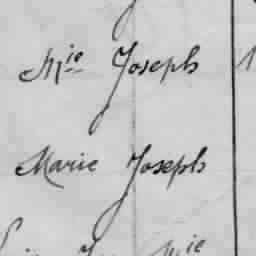 Mie Joseph
Marie Joseph